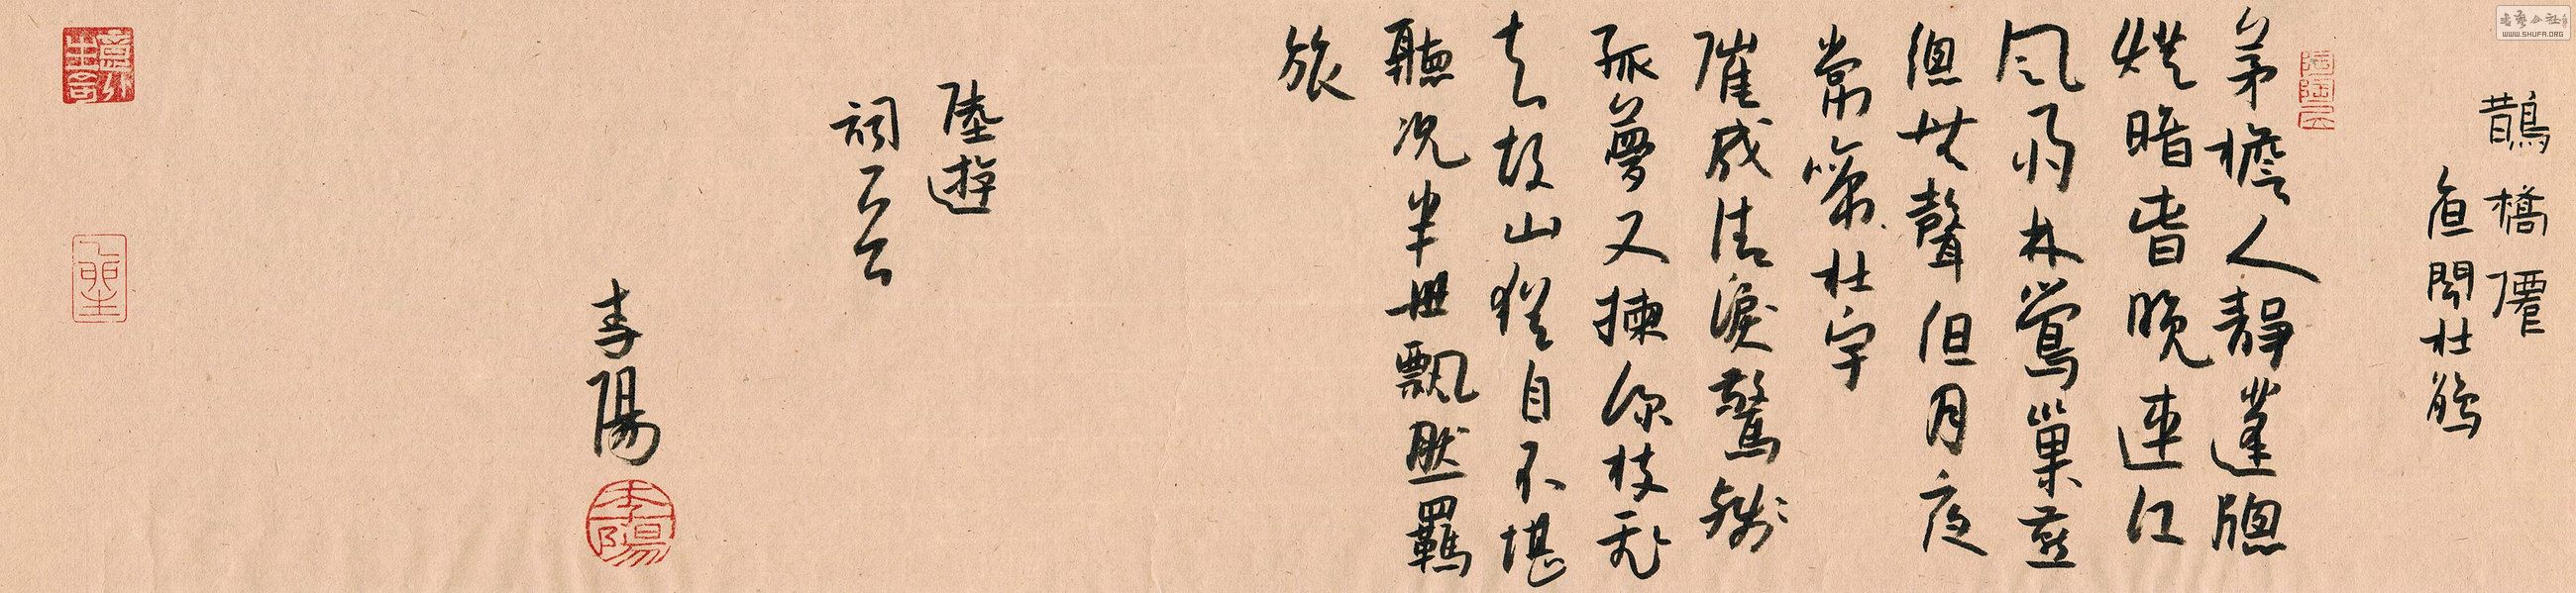 鵲橋僊
亱聞杜鵑
茅檐人靜蓬牕
燈暗旾晚連江
風雨林鶯巢燕
總無聲但月夜
常啼杜宇
催成清淚驚殘
孤夢又揀深枝飛
去故山猶自不堪
聽況半世飄然羈
旅
陸遊
詞
李陽
李陽
WWW.SHUFA.ORG